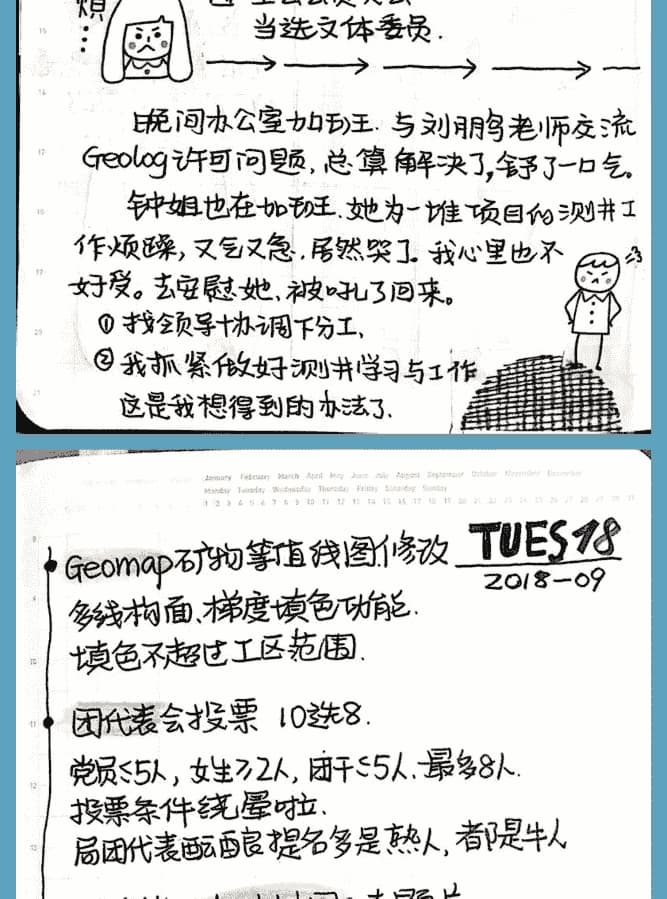 烦
...
当选文体委员.
晚间办公室加班. 与刘朋鸽老师交流
Geolog许可问题, 总算解决了,舒了一口气。
钟姐也在加班. 她为一堆项目的测井工
作烦躁, 又气又急. 居然哭了. 我心里也不
好受。去安慰她, 被吼了回来。
① 找领导协调下分工.
② 我抓紧做好测井学习与工作
这是我想得到的办法了.
January February March April May June July August September October November December
Monday Tuesday Wednesday Thursday Friday Saturday Sunday
TUES 18
2018-09
Geomap矿物等值线图修改
多线构面、梯度填色功能.
填色不超过工区范围.
团代表会投票 10选8.
党员≤5人, 女生≥2人, 团干≤5人. 最多8人.
投票条件绕晕啦.
局团代表酝酿提名多是熟人, 都是牛人